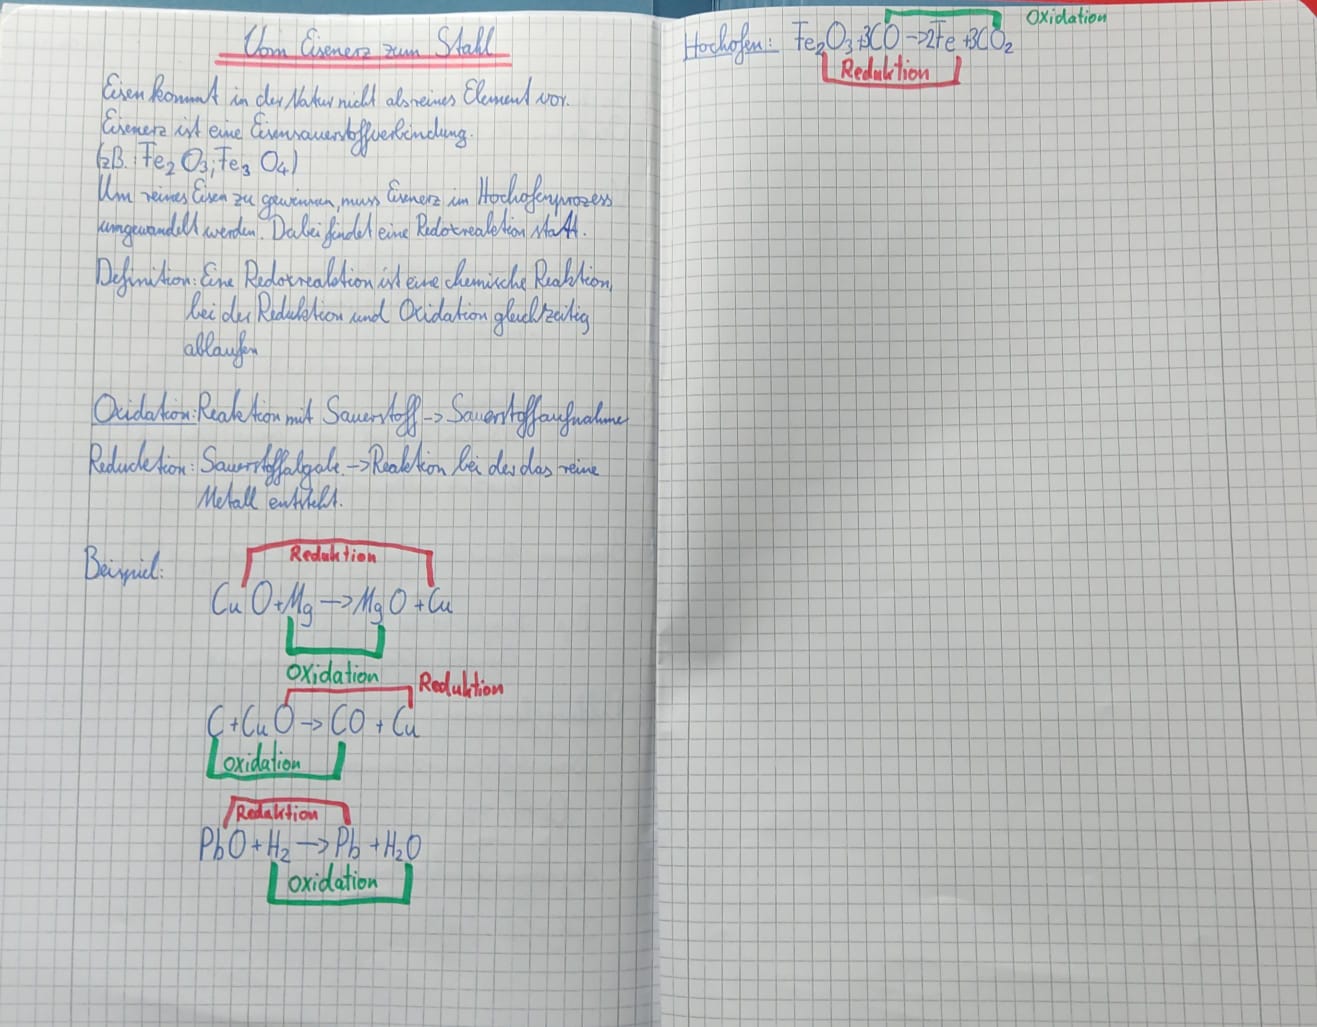 Vom Eisenerz zum Stahl
Eisen kommt in der Natur nicht als reines Element vor.
Eisenerz ist eine Eisensauerstoffverbindung.
(zB.: Fe₂O₃; Fe₃O₄)
Um reines Eisen zu gewinnen, muss Eisenerz im Hochofenprozess
umgewandelt werden. Dabei findet eine Redoxreaktion statt.
Definition: Eine Redoxreaktion ist eine chemische Reaktion,
bei der Reduktion und Oxidation gleichzeitig
ablaufen
Oxidation: Reaktion mit Sauerstoff -> Sauerstoffaufnahme
Reduktion: Sauerstoffabgabe -> Reaktion bei der das reine
Metall entsteht.
Beispiel:
Reduktion
CuO + Mg -> MgO + Cu
Oxidation
Reduktion
C + CuO -> CO + Cu
Oxidation
Reduktion
PbO + H₂ -> Pb + H₂O
Oxidation
Oxidation
Hochofen: Fe₂O₃ + 3CO -> 2Fe + 3CO₂
Reduktion